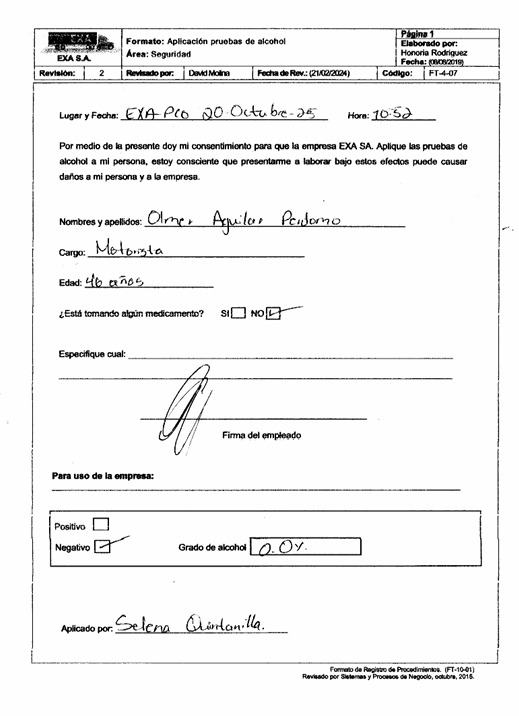 EXA S.A.
Formato: Aplicación pruebas de alcohol
Área: Seguridad
Página 1
Elaborado por:
Honoria Rodriguez
Fecha: (08/08/2019)
Revisión: 2 Revisado por: David Molina Fecha de Rev.: (21/02/2024) Código: FT-4-07
Lugar y Fecha: EXA-Pco 20-Octubre-25 Hora: 10:52
Por medio de la presente doy mi consentimiento para que la empresa EXA SA. Aplique las pruebas de
alcohol a mi persona, estoy consciente que presentarme a laborar bajo estos efectos puede causar
daños a mi persona y a la empresa.
Nombres y apellidos: Olmer Aguilar Perdomo
Cargo: Motorista
Edad: 46 años
¿Está tomando algún medicamento? SI NO
Especifique cual:
Firma del empleado
Para uso de la empresa:
Positivo
Negativo Grado de alcohol 0.0%.
Aplicado por: Selena Quintanilla.
Formato de Registro de Procedimientos. (FT-10-01)
Revisado por Sistemas y Procesos de Negocio, octubre, 2015.